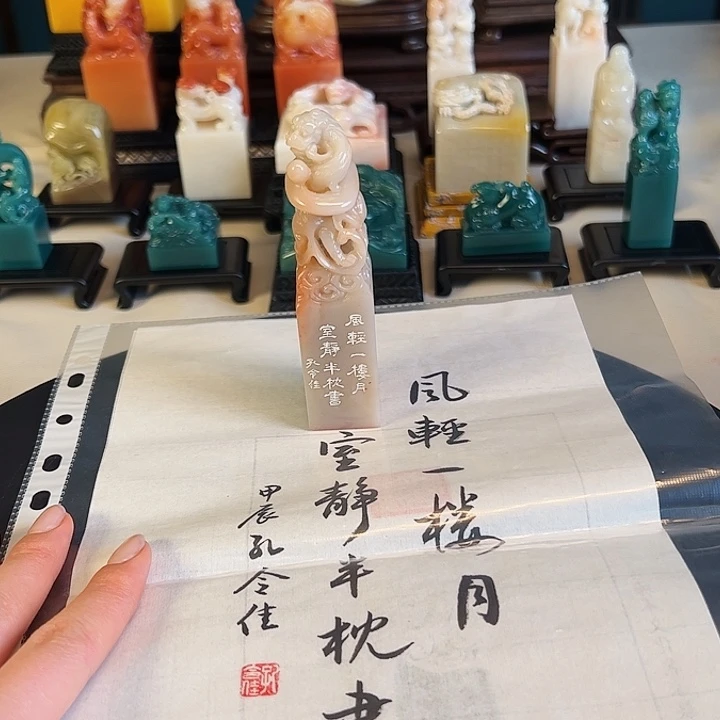 風輕一樓月
室靜半枕書
孔令佳
風輕一楼月
室靜半枕書
甲辰孔令佳